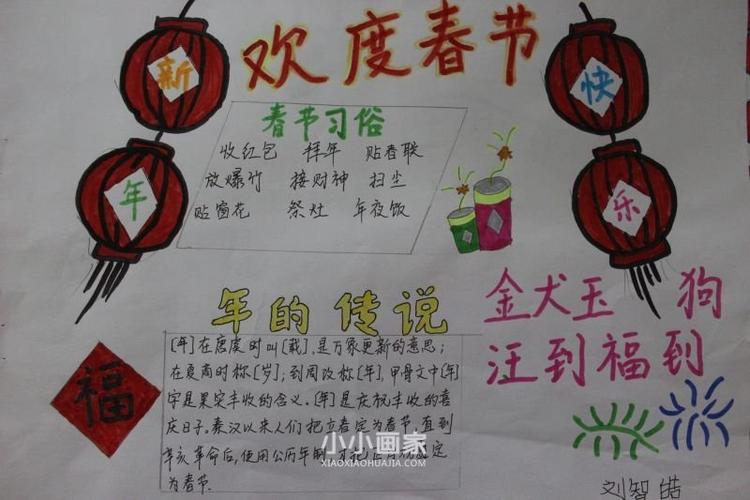 欢度春节
新年
快乐
春节习俗
收红包 拜年 贴春联
放爆竹 接财神 扫尘
贴窗花 祭灶 年夜饭
年的传说
[年]在唐虞时叫[载],是万象更新的意思;
在夏商时称[岁];到周改称[年],甲骨文中[年]
字是果实丰收的含义.[年]是庆祝丰收的喜
庆日子.秦汉以来人们把立春定为春节,直到
辛亥革命后,使用公历年制,才把正月初
定
为春节.
福
金犬玉 狗
汪到福到
刘智皓
小小画家
XIAOXIAOHUAJIA.COM